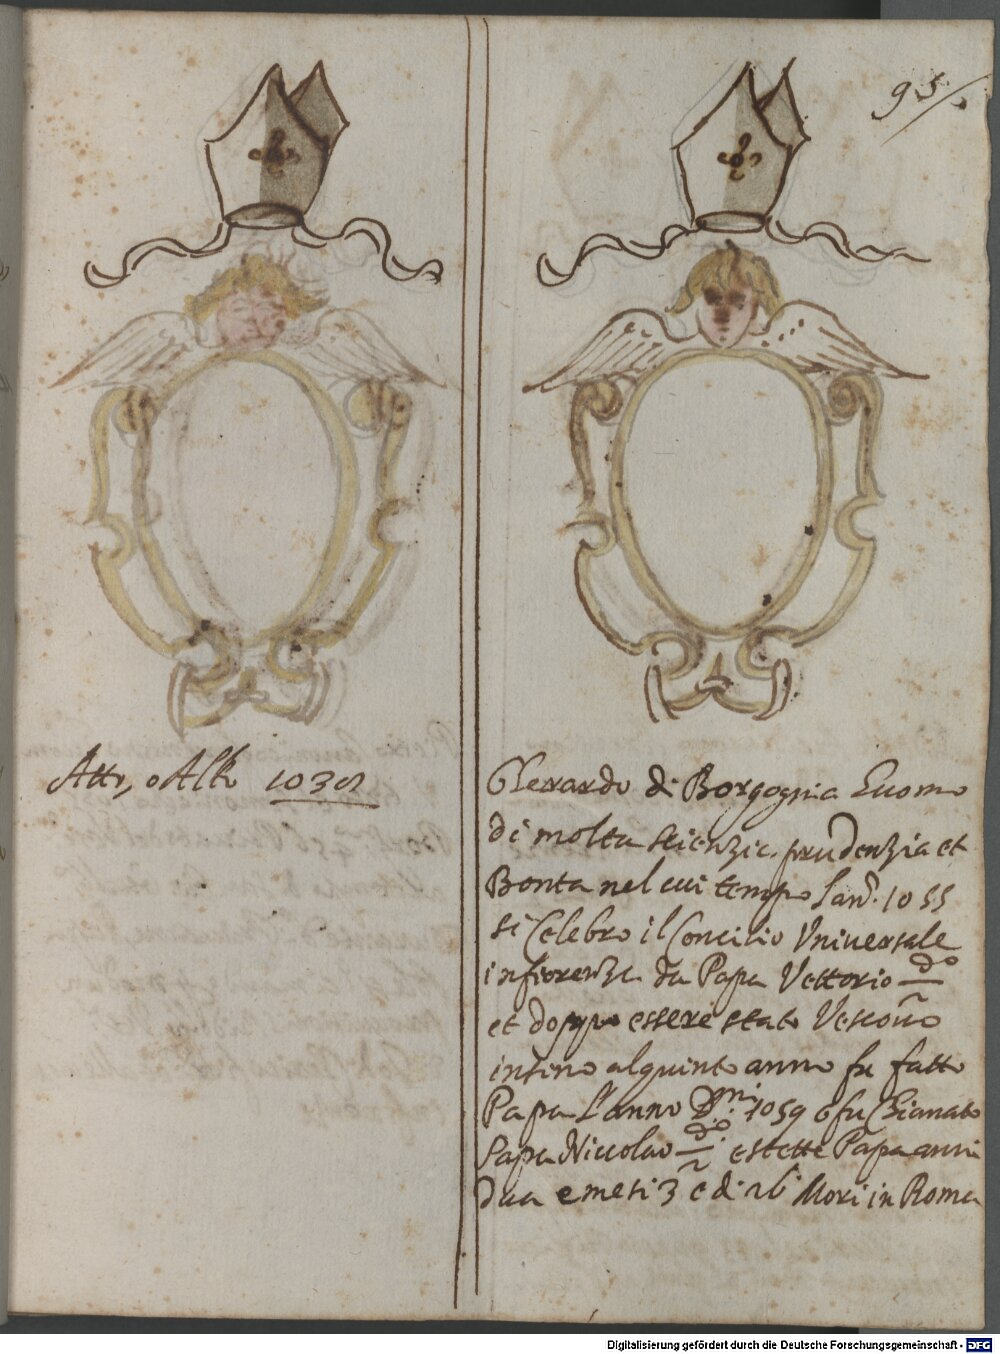 95
Atto, o Alto 1038
Gherardo di Borgognia Huomo
di molta scienzia. prudenzia et
Bonta nel cui tempo l'an.º 1055
si Celebro il Concilio Vniuersale
in fiorenza da Papa Vettorio 2do
et doppo essere stato Vescouo
insino al quinto anno fu fatto
Papa L'anno Dni. 1059 e fu Chiamato
Papa Niccolao 2do e stette Papa anni
dua e mesi 3 e di 26 Mori in Roma
Digitalisierung gefördert durch die Deutsche Forschungsgemeinschaft - DFG